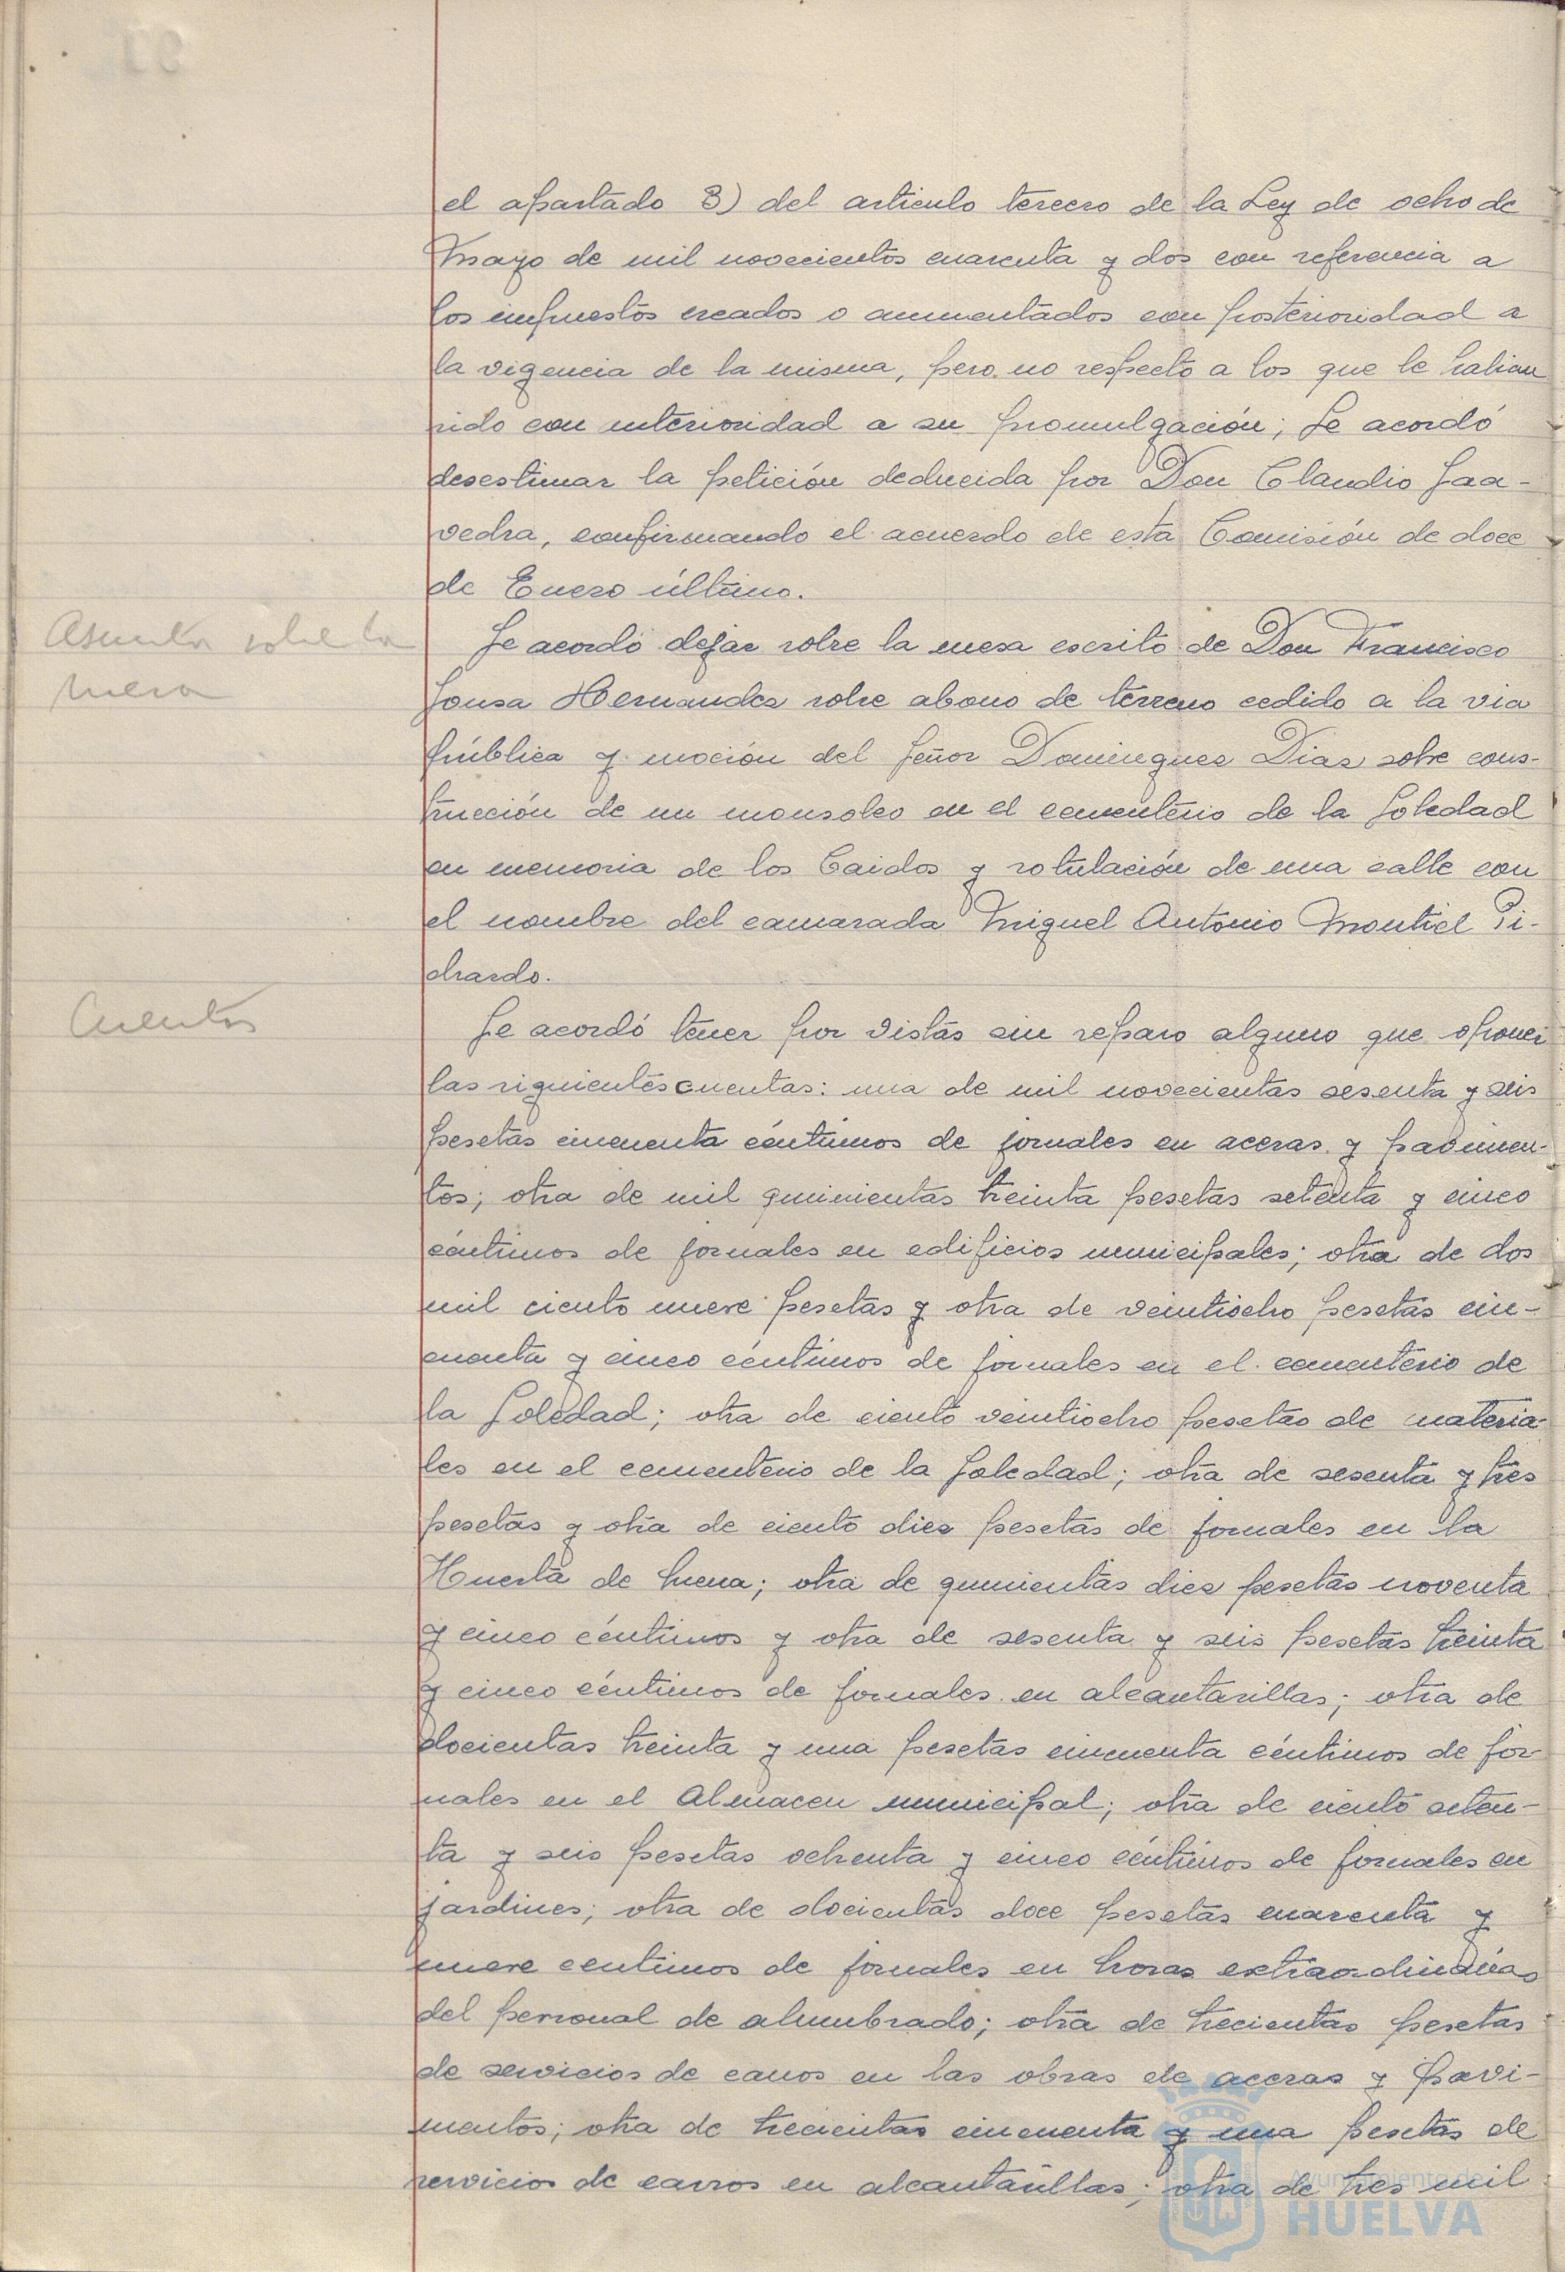 el apartado 3) del articulo tercero de la Ley de ocho de
Mayo de mil novecientos cuarenta y dos con referencia a
los impuestos creados o aumentados con posterioridad a
la vigencia de la misma, pero no respecto a los que le habian
sido con anterioridad a su promulgación; Se acordó
desestimar la petición deducida por Don Claudio Saa-
vedra, confirmando el acuerdo de esta Comisión de doce
de Enero último.
Asuntos sobre la
mesa
Se acordó dejar sobre la mesa escrito de Don Francisco
Sousa Hernandez sobre abono de terreno cedido a la via
pública y moción del Señor Dominguez Diaz sobre cons-
trucción de un mausoleo en el cementerio de la Soledad
en memoria de los Caidos y rotulación de una calle con
el nombre del camarada Miguel Antonio Montiel Pi-
chardo.
Cuentas
Se acordó tener por vistas sin reparo alguno que oponer
las siguientes cuentas: una de mil novecientas sesenta y seis
pesetas cincuenta céntimos de jornales en aceras y pavimen-
tos; otra de mil quinientas treinta pesetas setenta y cinco
céntimos de jornales en edificios municipales; otra de dos
mil ciento nueve pesetas y otra de veintiocho pesetas cin-
cuenta y cinco céntimos de jornales en el cementerio de
la Soledad; otra de ciento veintiocho pesetas de materia-
les en el cementerio de la Soledad; otra de sesenta y tres
pesetas y otra de ciento diez pesetas de jornales en la
Huerta de Mena; otra de quinientas diez pesetas noventa
y cinco céntimos y otra de sesenta y seis pesetas treinta
y cinco céntimos de jornales en alcantarillas; otra de
docientas treinta y una pesetas cincuenta céntimos de jor-
nales en el Almacen municipal; otra de ciento seten-
ta y seis pesetas ochenta y cinco céntimos de jornales en
jardines; otra de docientas doce pesetas cuarenta y
nueve centimos de jornales en horas extraordinarias
del personal de alumbrado; otra de trecientas pesetas
de servicios de carros en las obras de aceras y pavi-
mentos; otra de trecientas cincuenta y una pesetas de
servicios de carros en alcantarillas; otra de tres mil
Ayuntamiento de
HUELVA